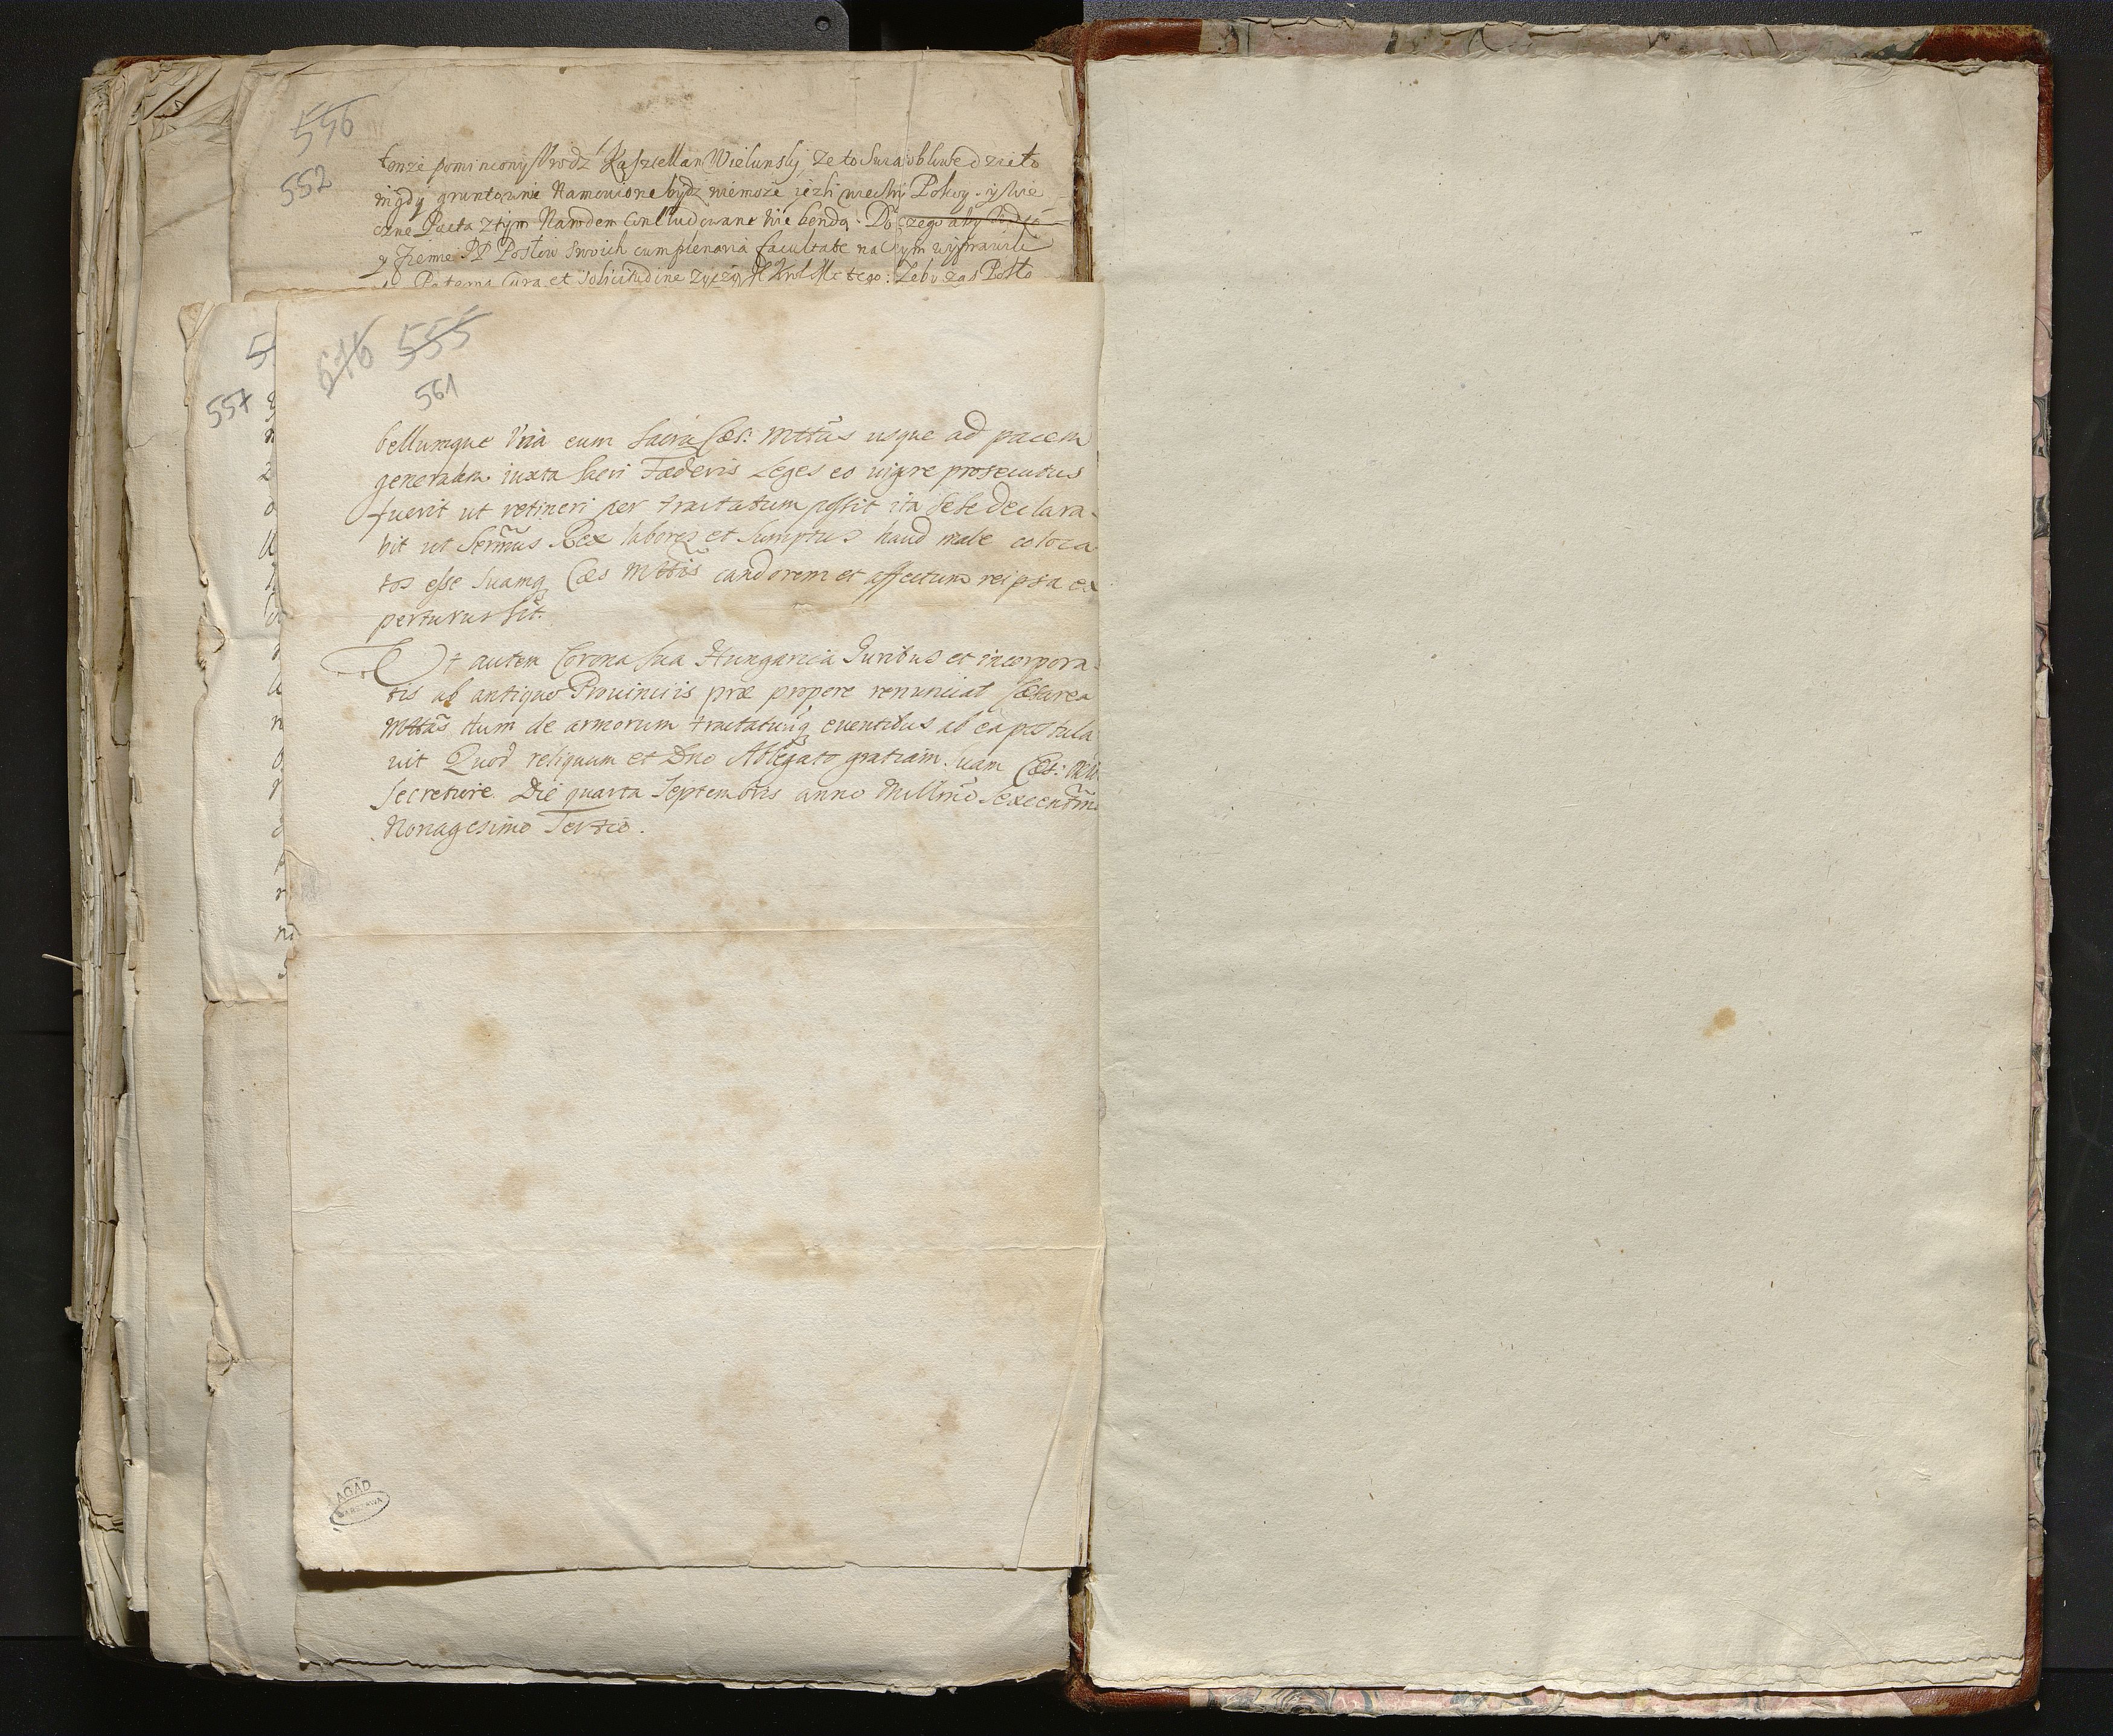 556
552
tenże pomieniony Urodź Kasztellan Wielunsky, ze to Swiatobliwe dzieło
nigdy gruntownie Namowione bydz niemoże ieżli wieczny Pokoy y Wie
czne Pacta z tym Narodem Concludowane nie bendą. Do czego aby
y Ziemie PP Posłow Swoich cum plenaria facultate na ym wyprawili
Paterna Cura et Solicitudine życzy JKrol Mc tego: Zeby zas Posło
557
616 555
561
bellumque Una cum Sacra Cæs: Mttãs usque ad pacem
generalem iuxta Sacri Fæderis Leges eo vigore prosecutus
fuerit ut retineri per tractatum possit ita Sese declara-
bit ut Sermus Rex labores et Sumptus haud male coloca
tos esse Suamq Cæs Mttis candorem et affectum reipsa ex
perturus Sit.
Ut autem Corona Sua Hungarica Juribus et incorpora-
tis ab antiquo Provinciis præ propere renunciat Cæsarea
Mttãs tum de armorum tractatuuq eventibus ab ea postula
vit Quod reliquum et Dno Ablegato gratiam suam Cæs:
Secretiore. Die quarta Septembris anno Millmo Sexcentmo
Nonagesimo Tertio.
AGAD
WARSZAWA